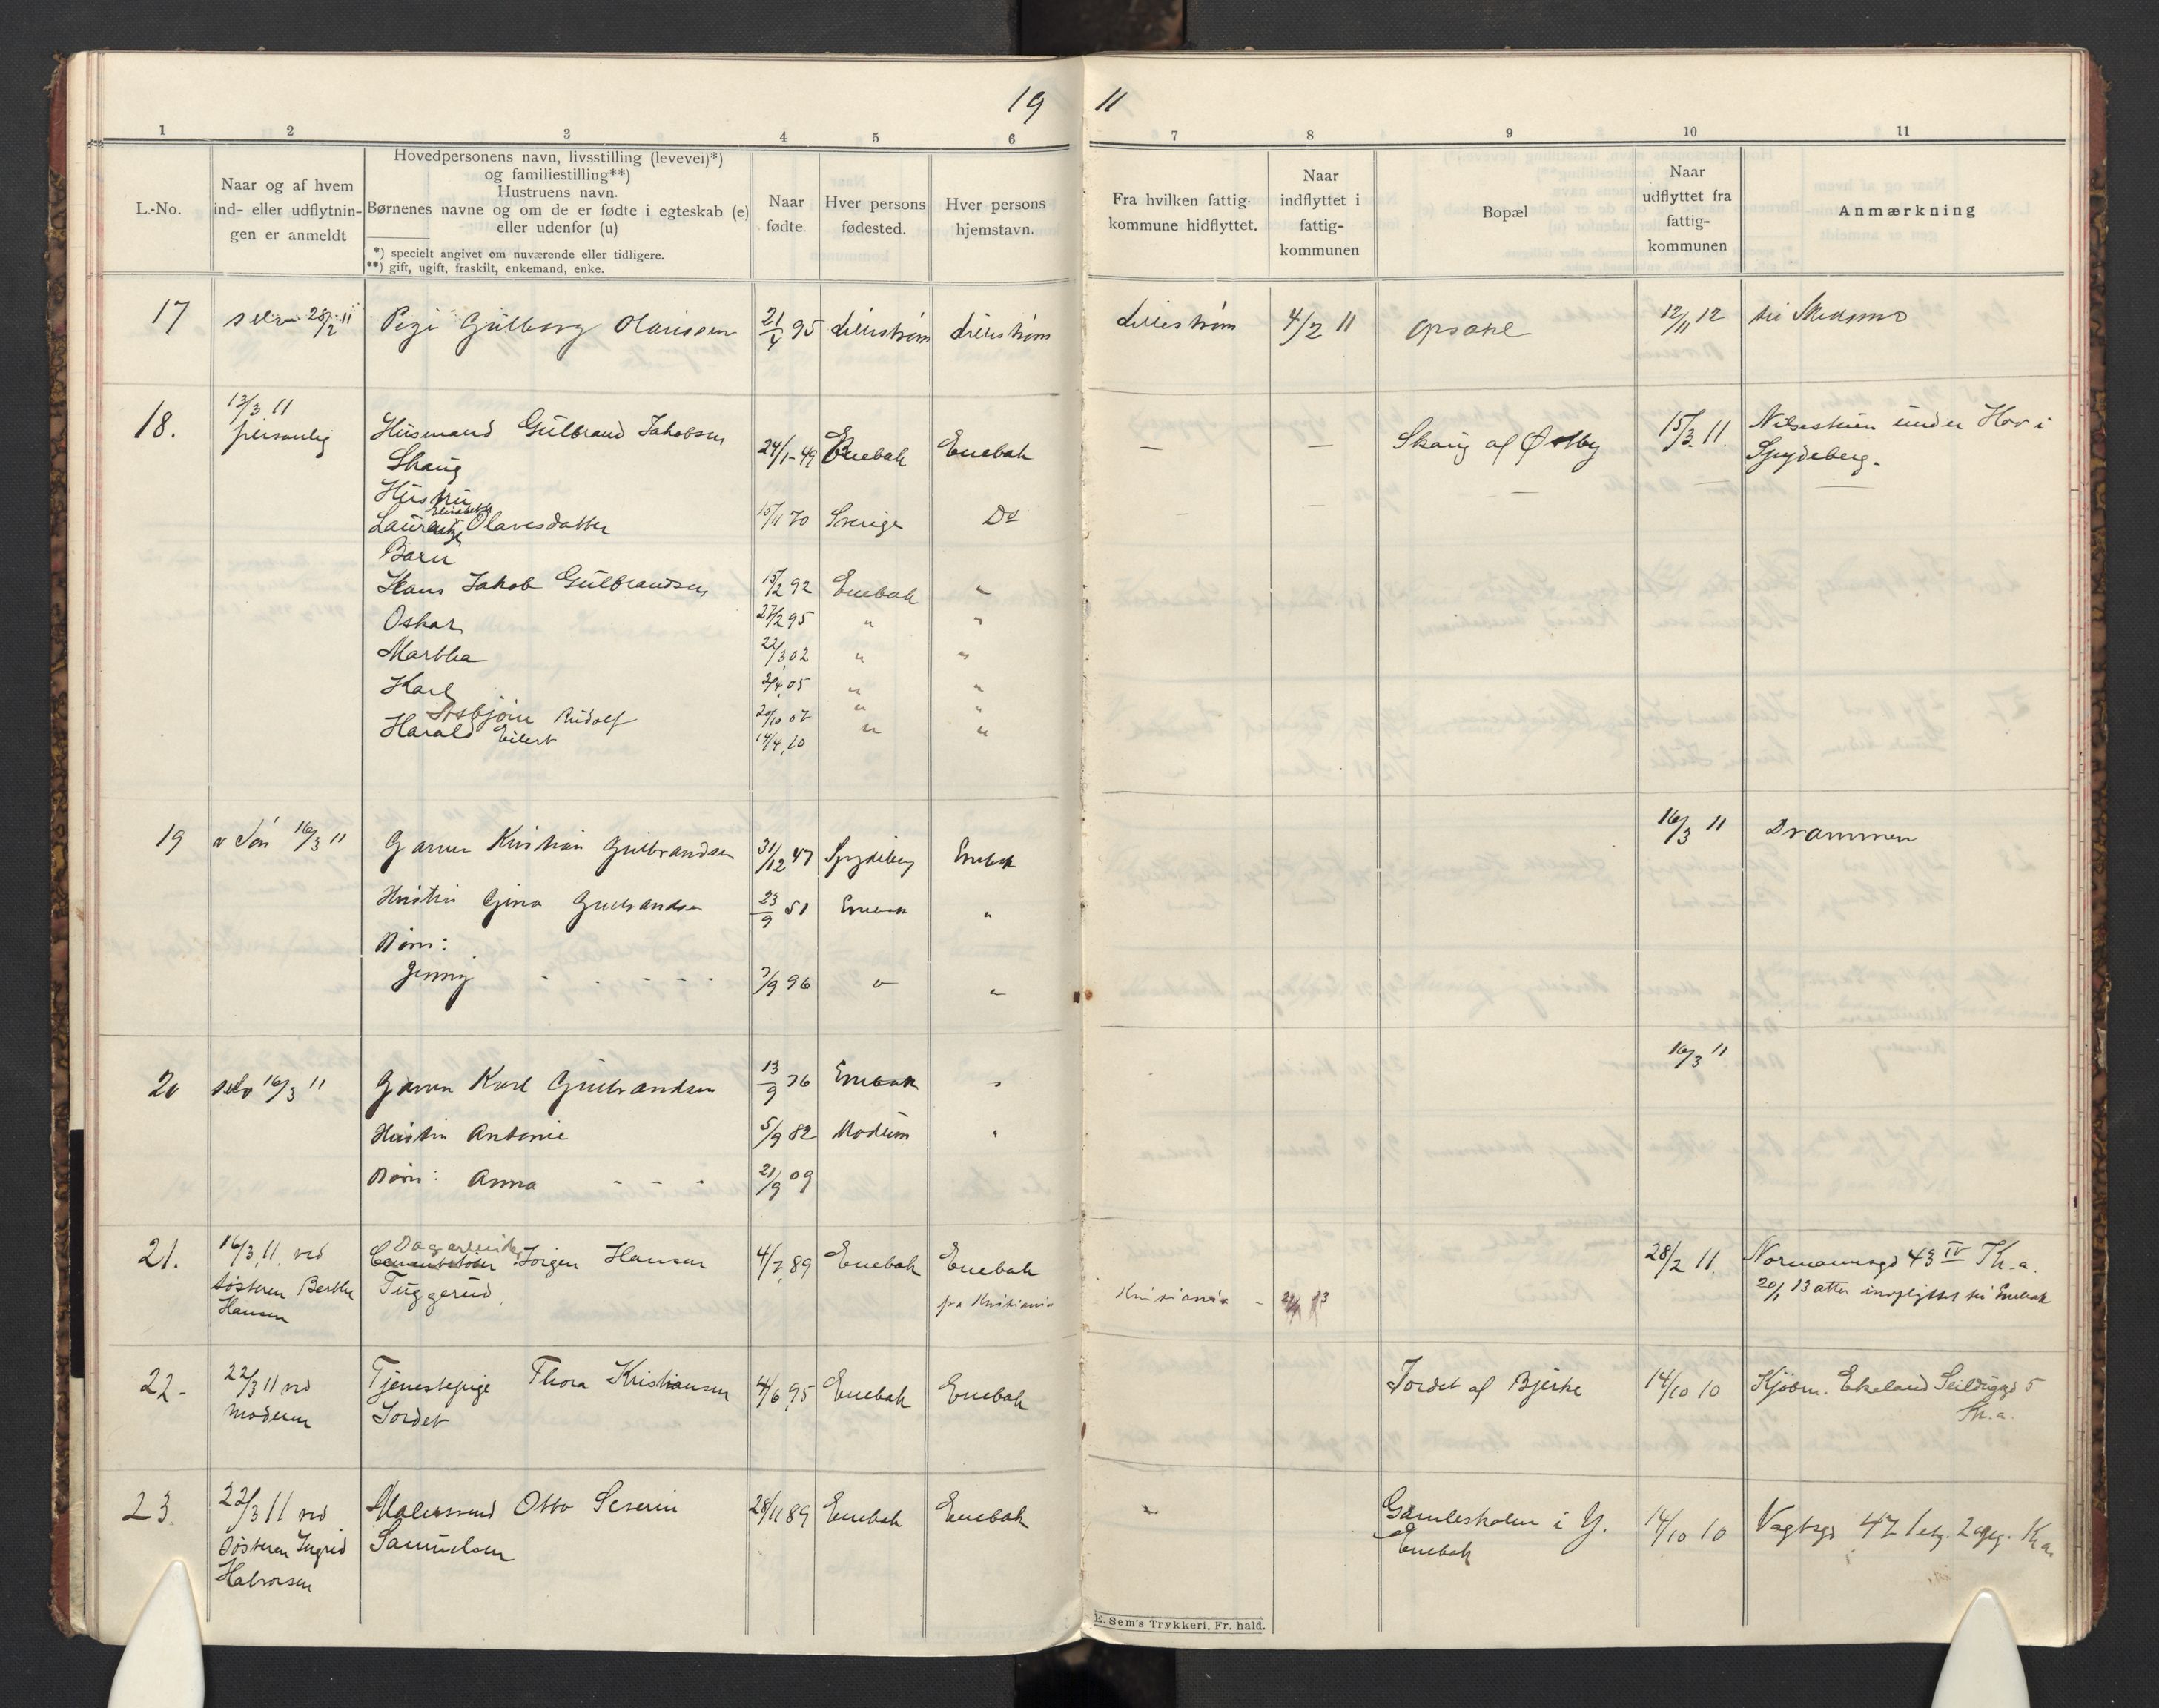 19 11
1 2 3 4 5 6 7 8 9 10 11
L.-No.
Naar og af hvem
ind- eller udflytnin-
gen er anmeldt
Hovedpersonens navn, livsstilling (levevei)*)
og familiestilling**)
Hustruens navn.
Børnenes navne og om de er fødte i egteskab (e)
eller udenfor (u)
*) specielt angivet om nuværende eller tidligere.
**) gift, ugift, fraskilt, enkemand, enke.
Naar
fødte.
Hver persons
fødested.
Hver persons
hjemstavn.
Fra hvilken fattig-
kommune hidflyttet.
Naar
indflyttet i
fattig-
kommunen
Bopæl
Naar
udflyttet fra
fattig-
kommunen
Anmærkning
17 selv 28/2 11 Pige Gulborg Olaussen 21/4 95 Lillestrøm Lillestrøm Lillestrøm 4/2 11 Opsahl 12/11 12
18. 13/3 11 Husmand Gulbrand Jakobsen 24/1-49 Enebak Enebak — — Skaug af Østby 15/3 11. under Hov i
personlig Skaug Spydeberg.
Hustru
Elisabeth
Olavesdatter 15/11 70 Sverige Do
Barn
Hans Jakob Gulbrandsen 15/2 92 Enebak "
Oskar 27/2 95 " "
Martha 22/3 02 " "
Karl 2/4 05 " "
Asbjörn Rudolf 20/10 07 " "
Harald Eilert 14/4 10 " "
19 v Søn 16/3 11 Garver Kristian Gulbrandsen 31/12 47 Spydeberg Enebak 16/3 11 Drammen
Hustru Gina Gulbrandsen 23/9 51 Enebak "
Børn:
Jenny - - - - - 7/9 96 " "
20 selv 16/3 11 Garver Karl Gulbrandsen 13/9 76 Enebak " 16/3 11
Hustru Antonie 5/9 82 Modum "
Børn: Anna - - - 21/9 09
21. 16/3 11 ved Dagarbeider Jörgen Hansen 4/7 89 Enebak Enebak 28/2 11. Normannsgd 43 IV Kr.a.
søsteren Berthe Tuggerud fra Kristiania Kristiania - 20/1 13 atter indflyttet til Enebak
Hansen
22- 22/3 11 ved Tjenestepige Thora Kristiansen 4/6 95 Enebak Enebak Jordet af Bjerke 14/10 10 Kjöbm. Ekeland Seildugsgd 5
moderen Jordet Kr.a.
23. 22/3 11 ved Malersvend Otto Severin 28/11 89 Enebak Enebak " Gamleskolen i Y. 14/10 10 Vogtsgd 47 1 etg. 2 opg. Kr.a.
søsteren Ingrid Samuelsen Enebak
Halvorsen
E. Sem's Trykkeri, Fr. hald.